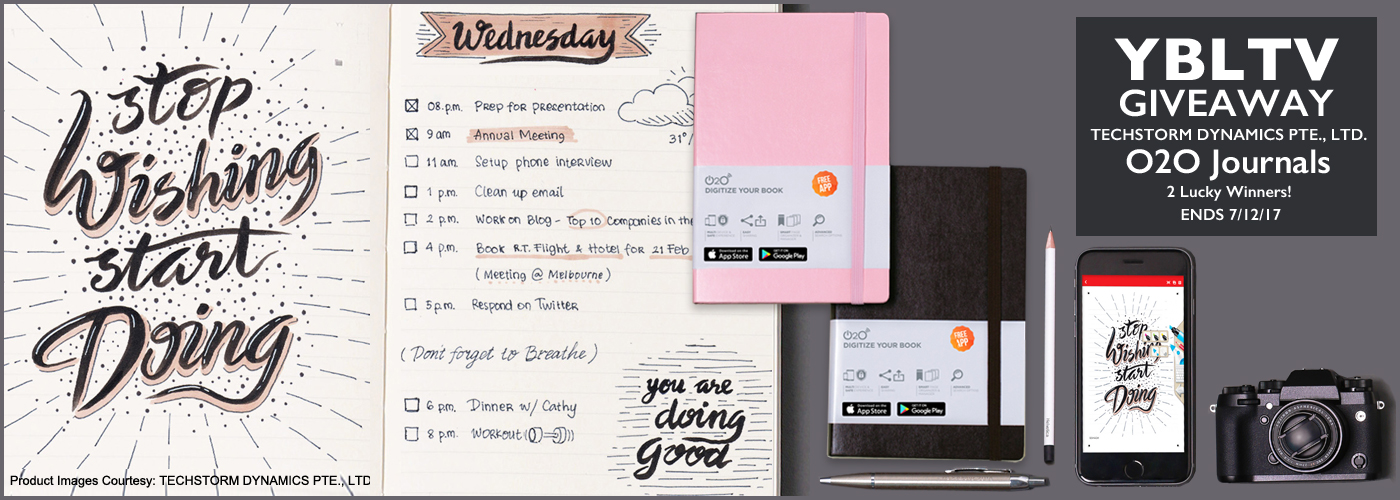 stop
Wishing
start
Doing
Product Images Courtesy: TECHSTORM DYNAMICS PTE., LTD
Wednesday
08.p.m. Prep for presentation
9 am Annual Meeting
31°/
11 am. Setup phone interview
1 p.m. Clean up email
2 p.m. Work on Blog - Top 10 Companies in the
4 p.m. Book R.T. Flight & Hotel for 21 Feb
(Meeting @ Melbourne)
5 p.m. Respond on Twitter
(Dont forget to Breathe)
6 p.m. Dinner w/ Cathy
8 p.m. Workout
you are
doing
good
O2O
DIGITIZE YOUR BOOK
FREE
APP
Download on the
App Store
GET IT ON
Google Play
O2O
DIGITIZE YOUR BOOK
FREE
APP
Download on the
App Store
GET IT ON
Google Play
YBLTV
GIVEAWAY
TECHSTORM DYNAMICS PTE., LTD.
O2O Journals
2 Lucky Winners!
ENDS 7/12/17
stop
Wishin
start
Doing